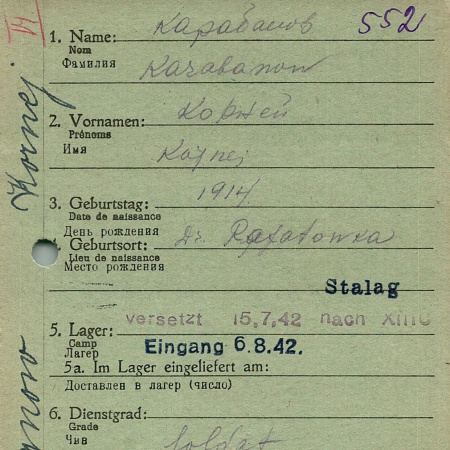 VI
552
1. Name: Карабанов
Nom
Фамилия Karabanow
2. Vornamen: Корней
Prénoms
Имя Kornej
3. Geburtstag: 1914
Date de naissance
День рождения
Geburtsort: Dr. Rafatowka
Lieu de naissance
Место рождения
Stalag
versetzt 15.7.42 nach XIII C
5. Lager:
Camp
Лагерь
Eingang 6.8.42.
5a. Im Lager eingeliefert am:
Доставлен в лагерь (число)
6. Dienstgrad:
Grade
Чин Soldat
Kornej